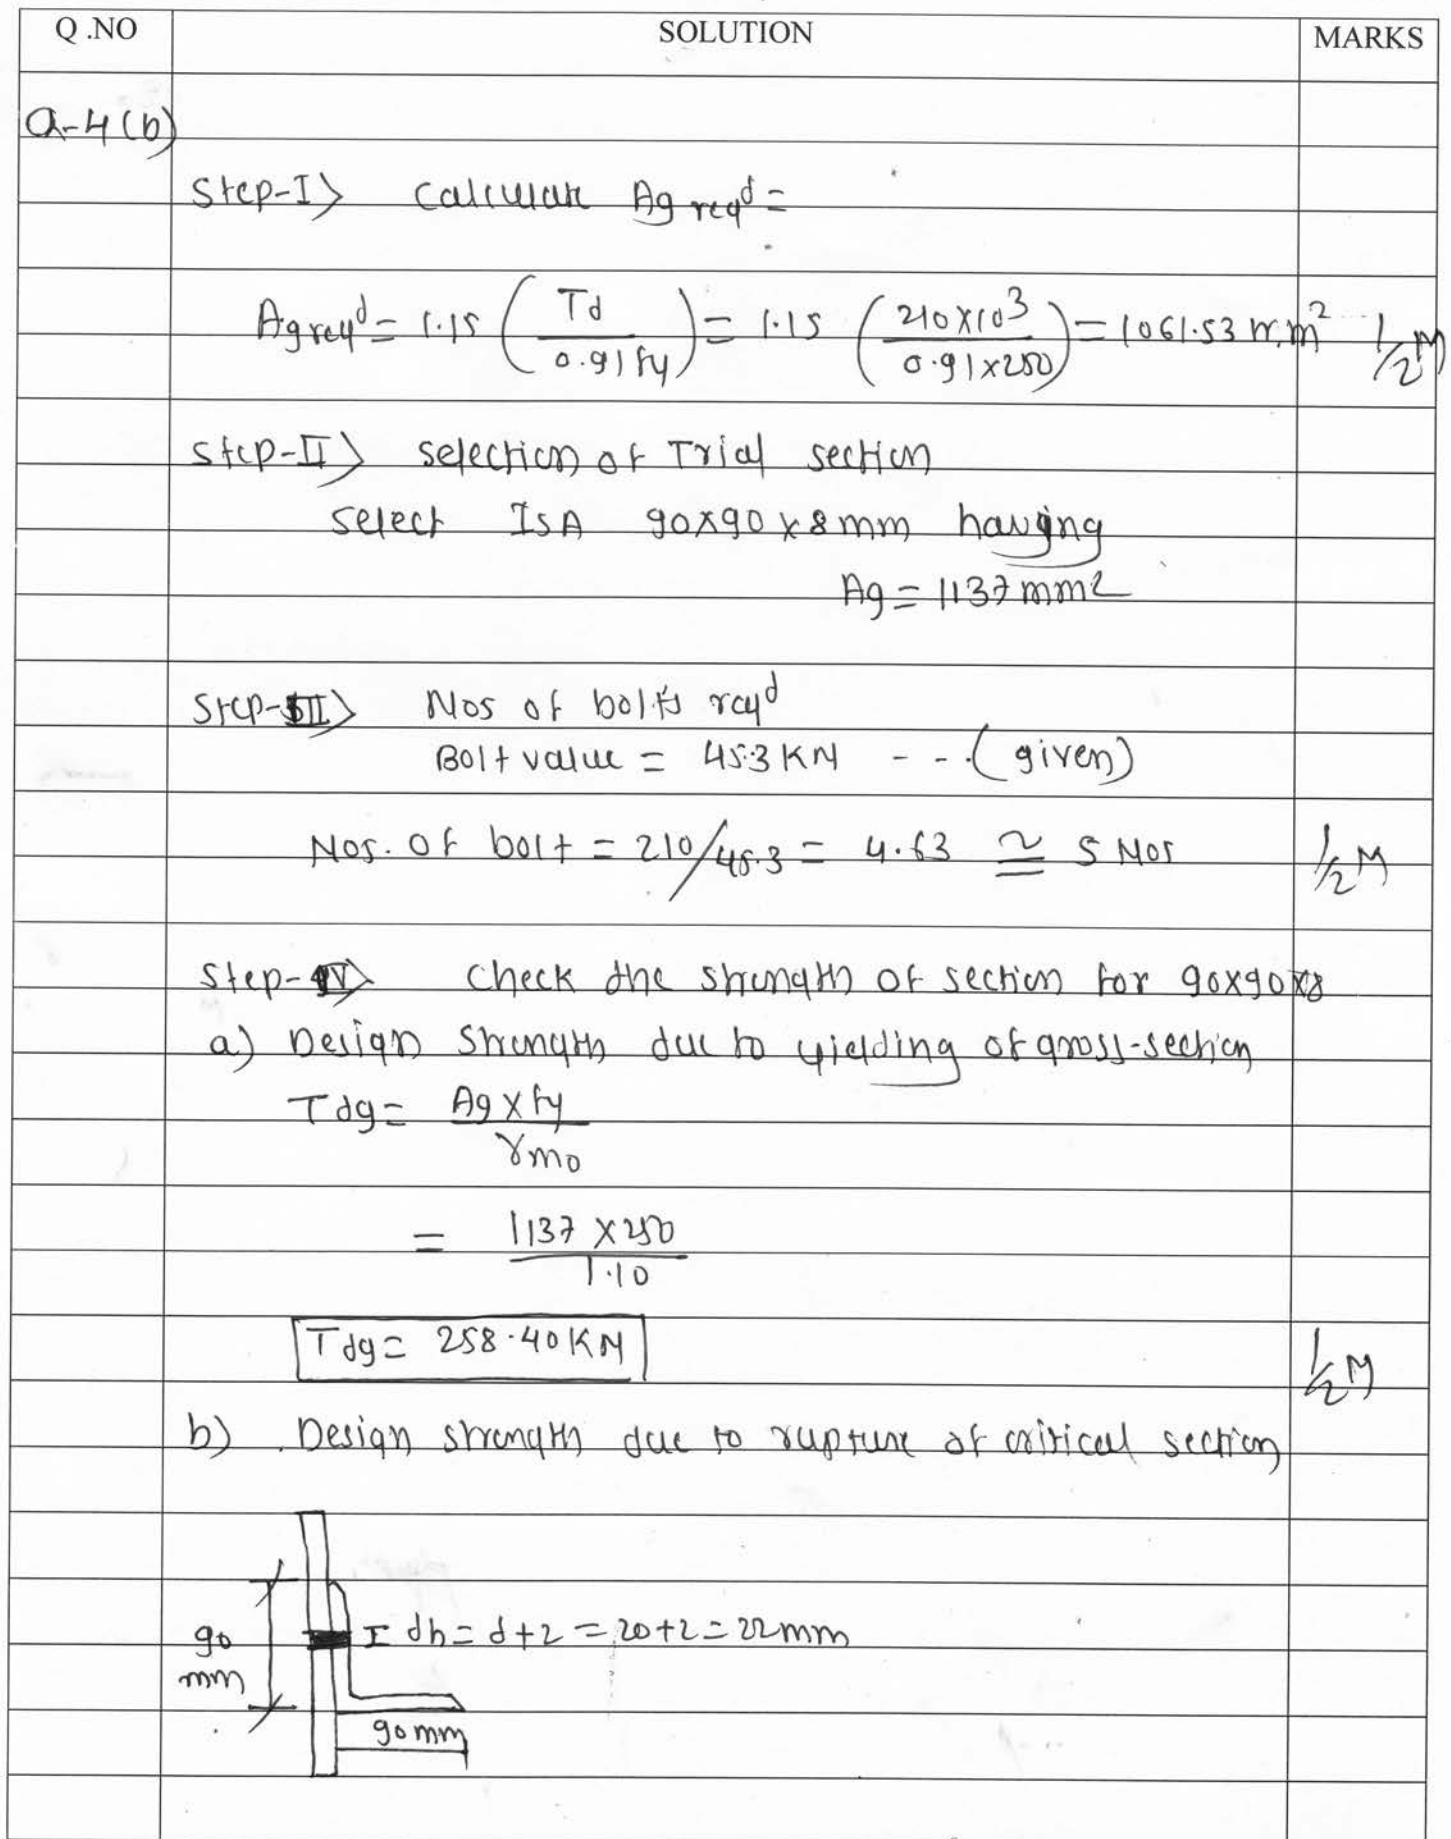 Q .NO SOLUTION MARKS
Q-4(b)
Step-I> Calculate Ag reqd =
Ag reqd = 1.15 (Td / 0.91 fy) = 1.15 (210×10³ / 0.91×250) = 1061.53 mm² 1/2 M
Step-II> selection of Trial section
Select ISA 90×90×8 mm having
Ag = 1137 mm²
Step-III> Nos of bolts reqd
Bolt value = 45.3 KN - - . (given)
Nos. of bolt = 210/45.3 = 4.63 ≅ 5 Nos 1/2 M
Step-IV> Check the strength of section for 90×90×8
a) Design strength due to yielding of gross-section
Tdg = Ag × fy / γmo
= 1137 × 250 / 1.10
Tdg = 258.40 KN 1/2 M
b) . Design strength due to rupture of critical section
90 mm
I dh = d+2 = 20+2 = 22mm
90 mm